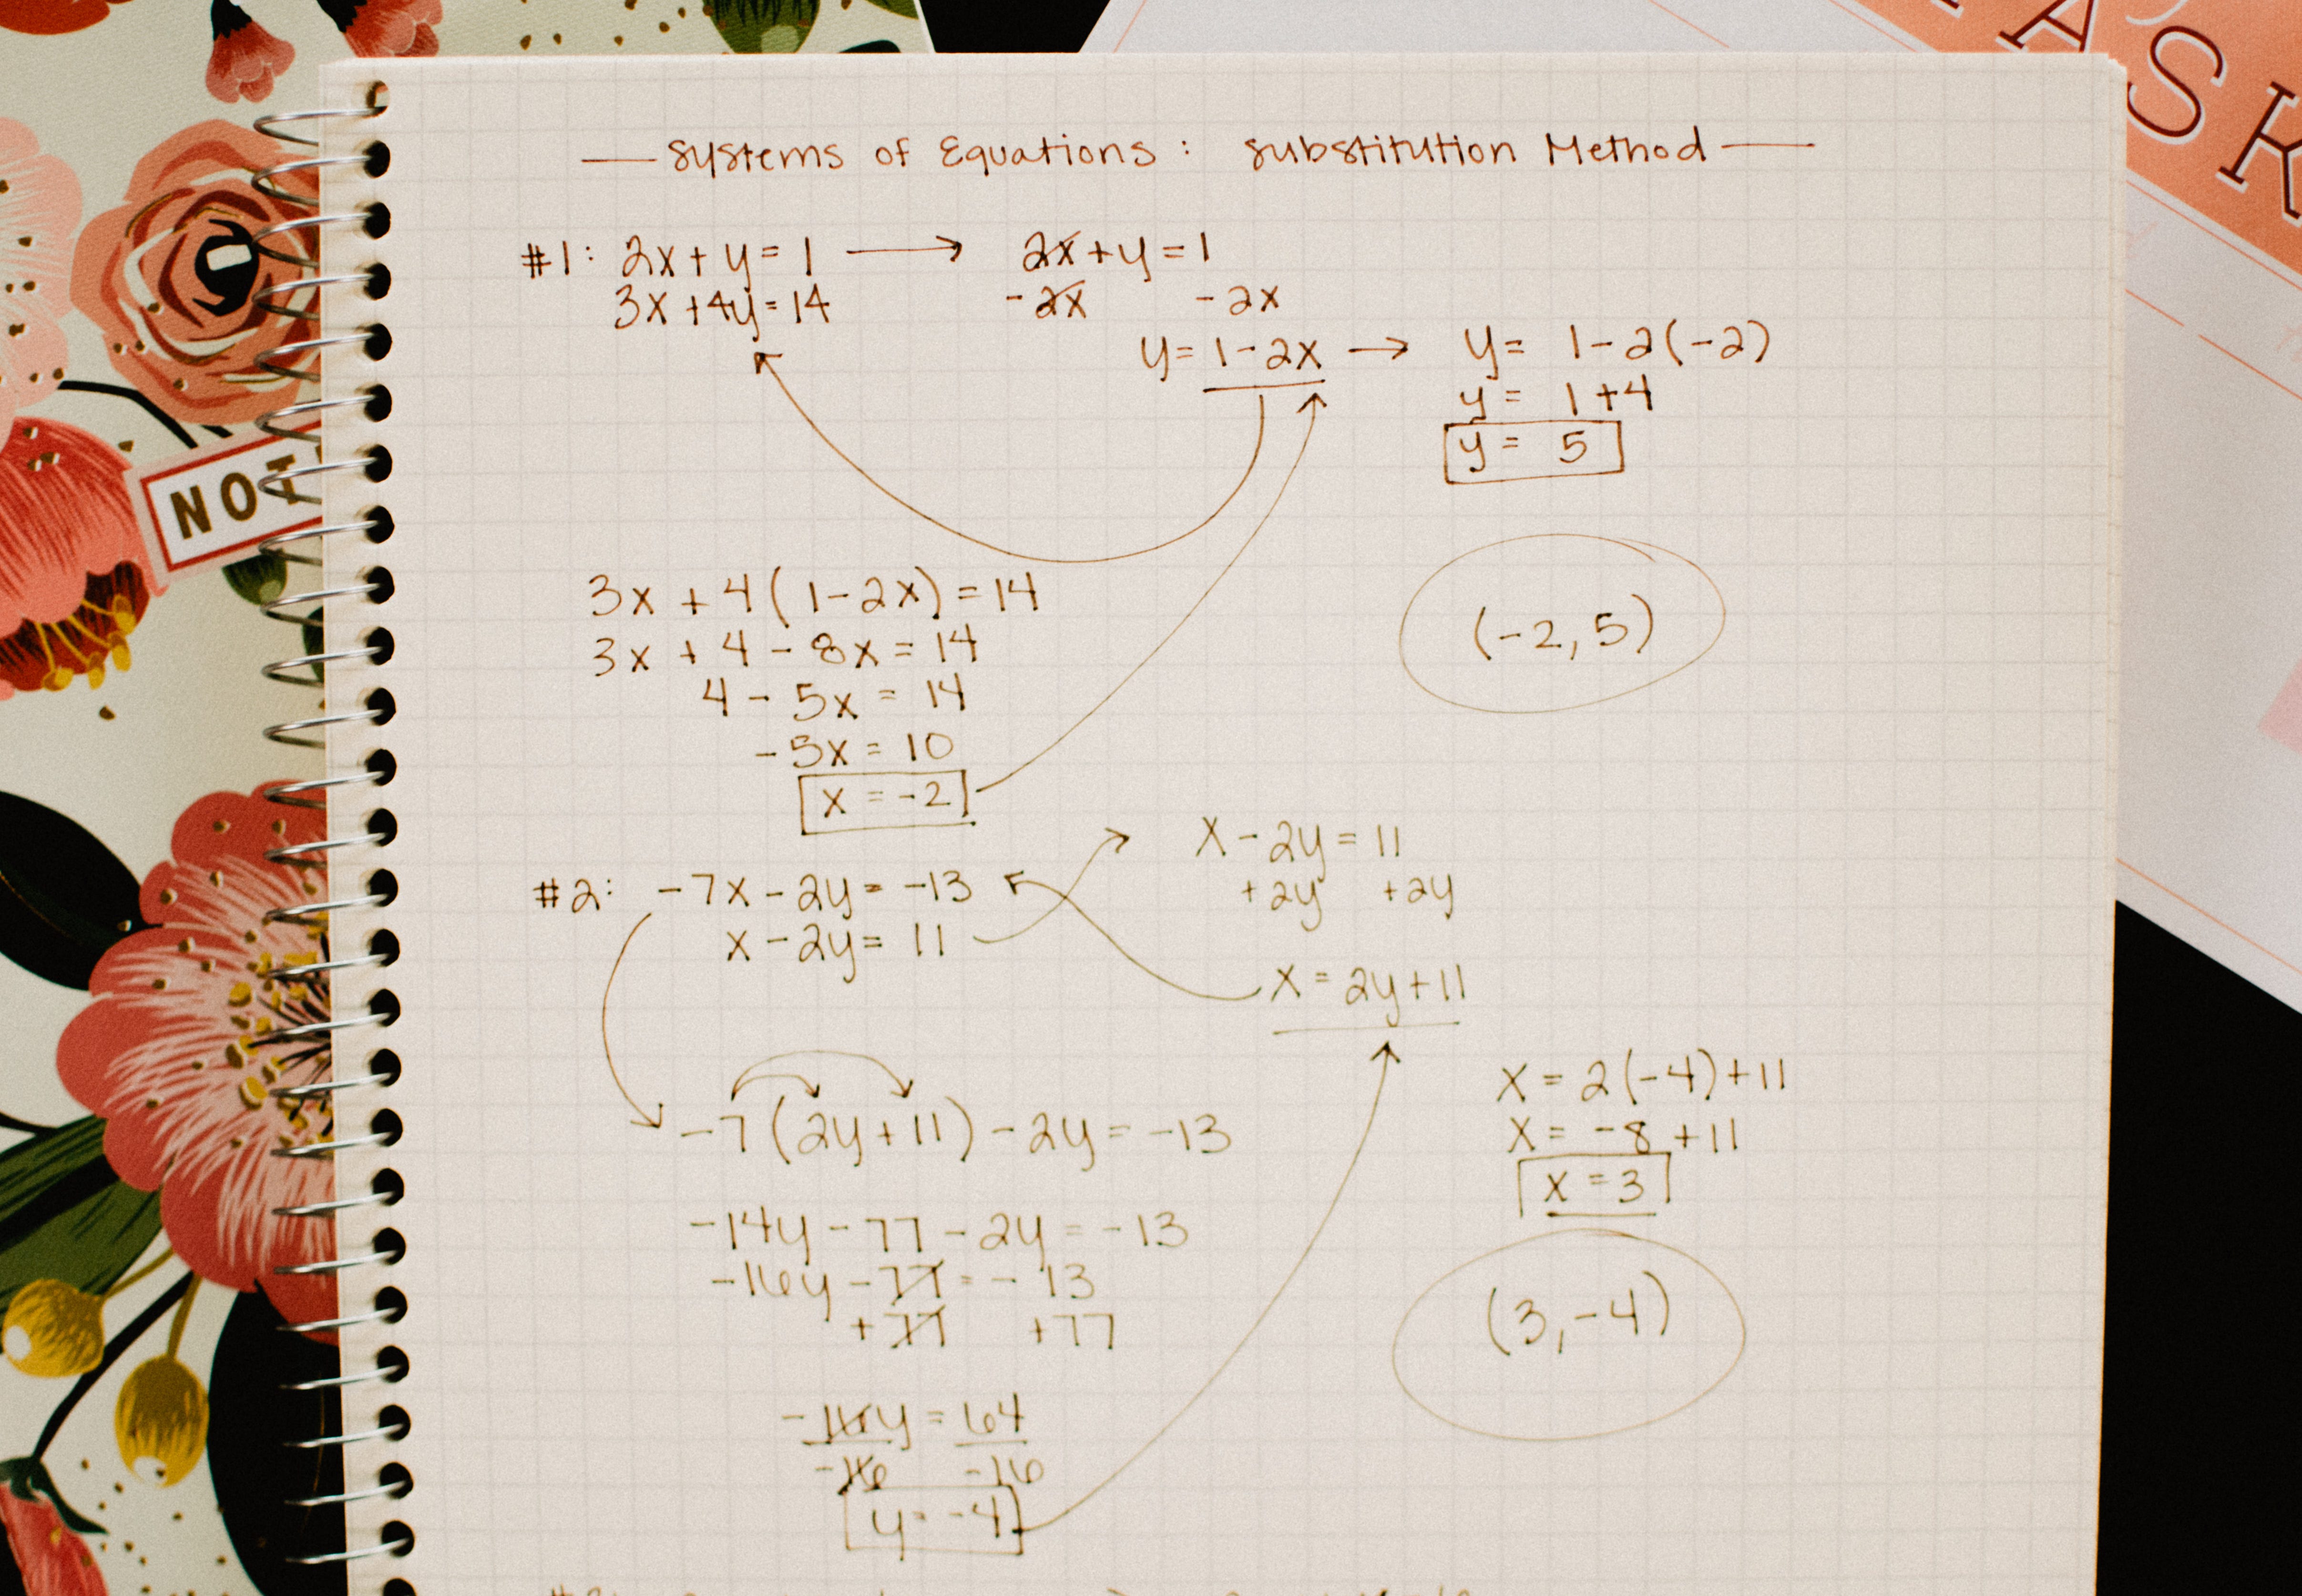 ASK
— Systems of Equations: Substitution Method —
#1: 2x + y = 1 → 2x + y = 1
3x + 4y = 14 - 2x - 2x
y = 1 - 2x → y = 1 - 2(-2)
y = 1 + 4
y = 5
NOT
3x + 4(1 - 2x) = 14
(-2, 5)
3x + 4 - 8x = 14
4 - 5x = 14
-5x = 10
x = -2
x - 2y = 11
#2: -7x - 2y = -13 +2y +2y
x - 2y = 11
x = 2y + 11
x = 2(-4) + 11
-7(2y + 11) - 2y = -13
x = -8 + 11
x = 3
-14y - 77 - 2y = -13
-16y - 77 = -13
+77 +77
(3, -4)
-16y = 64
-16 -16
y = -4